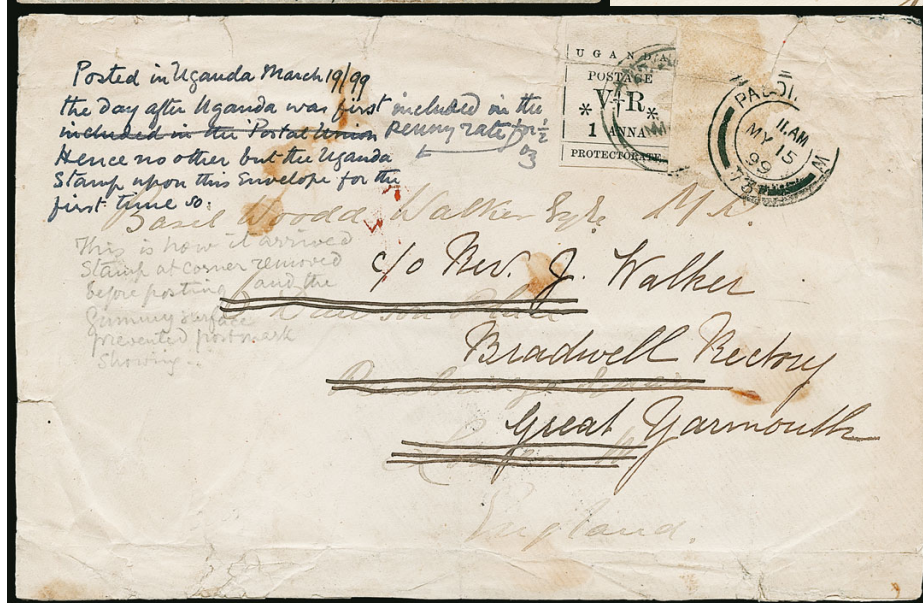 Posted in Uganda March 19/99
the Day after Uganda was first included in the
included in the Postal Union Penny rate for ½
oz
Hence no other but the Uganda
Stamp upon this Envelope for the
first time so.
UGANDA
POSTAGE
* V R *
1 ANNA
PROTECTORATE
PADDI
11.AM
MY 15
99
W
Basil Woodd Walker Esqre
This is how it arrived
Stamp at corner removed
before posting and the
Gummy surface
prevented postmark
Showing..
c/o Rev. J. Walker
Bradwell Rectory
Great Yarmouth
England.